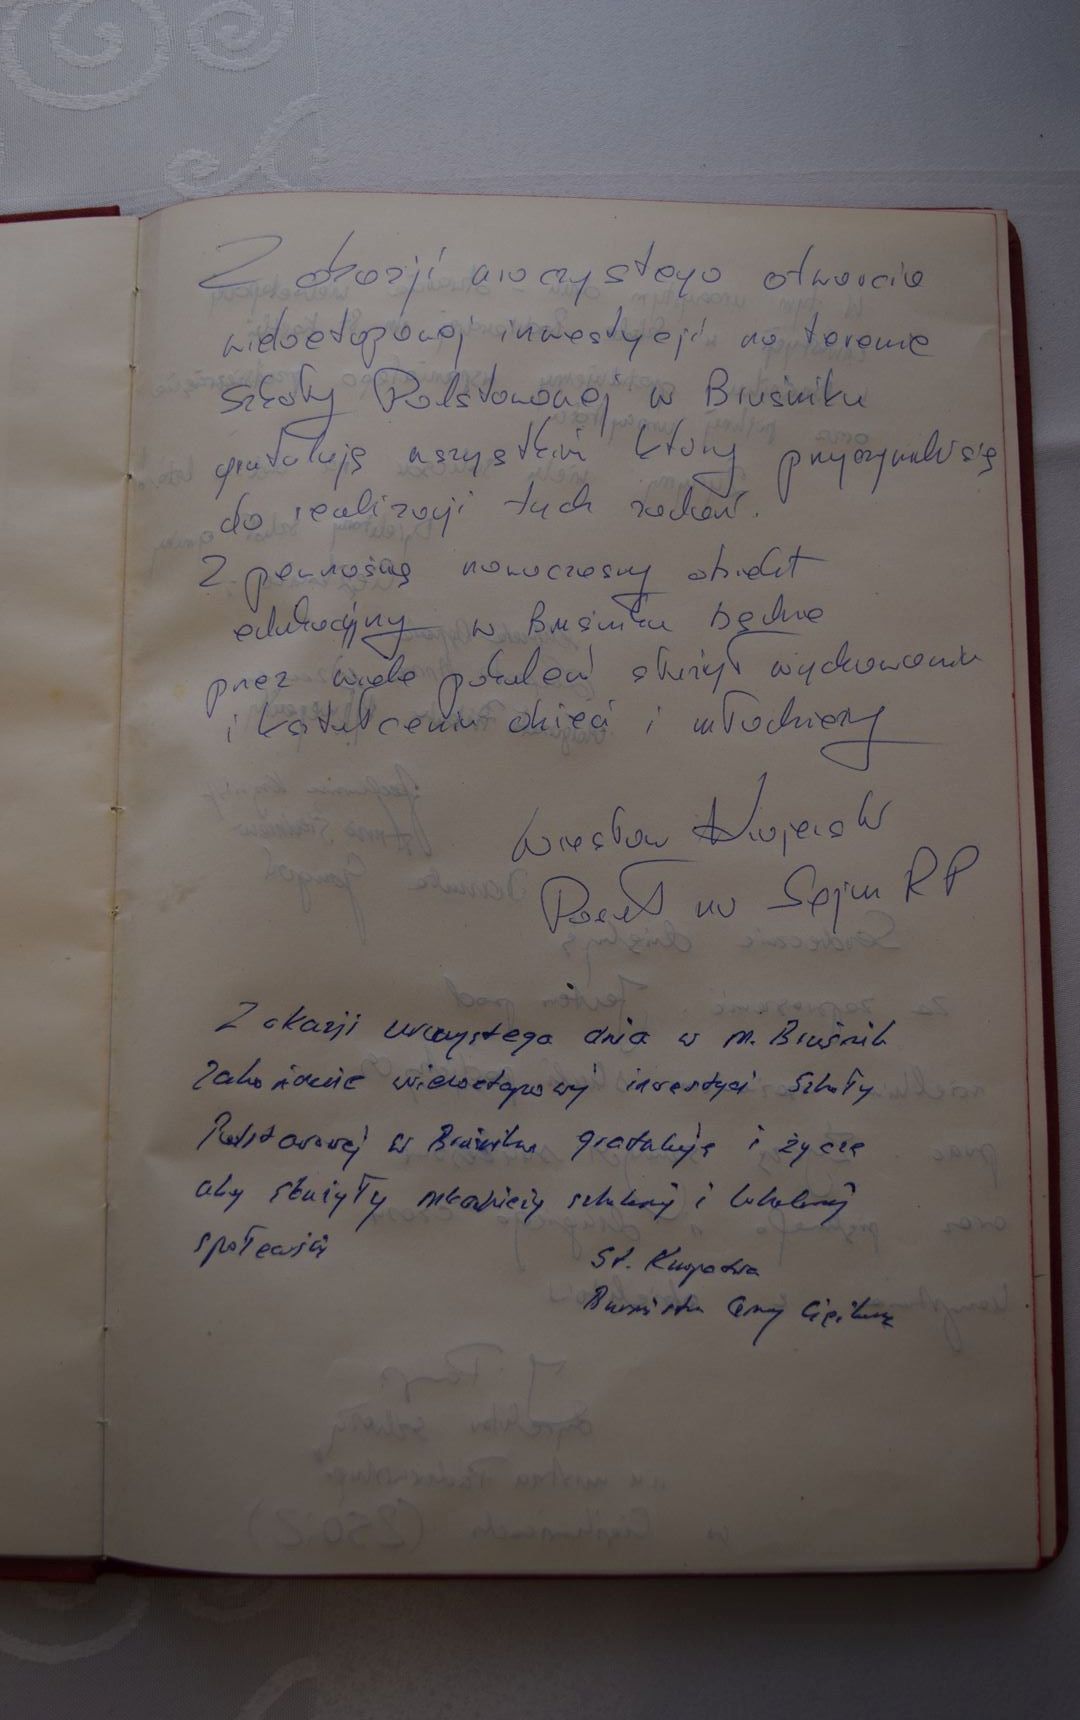 Z okazji uroczystego otwarcia
wieloetapowej inwestycji na terenie
Szkoły Podstawowej w Bruśniku
gratuluję wszystkim którzy przyczynili się
do realizacji tych zadań.
Z pewnością nowoczesny obiekt
edukacyjny w Bruśniku będzie
przez wiele pokoleń służył wychowaniu
i kształceniu dzieci i młodzieży
Wiesław
Poseł na Sejm RP
Z okazji uroczystego dnia w m. Bruśnik
zakończenie wieloetapowej inwestycji Szkoły
Podstawowej w Bruśniku gratuluję i życzę
aby służyły młodzieży szkolnej i lokalnej
społeczności
St. Kuropatwa
Burmistrz Gminy Ciężkowice